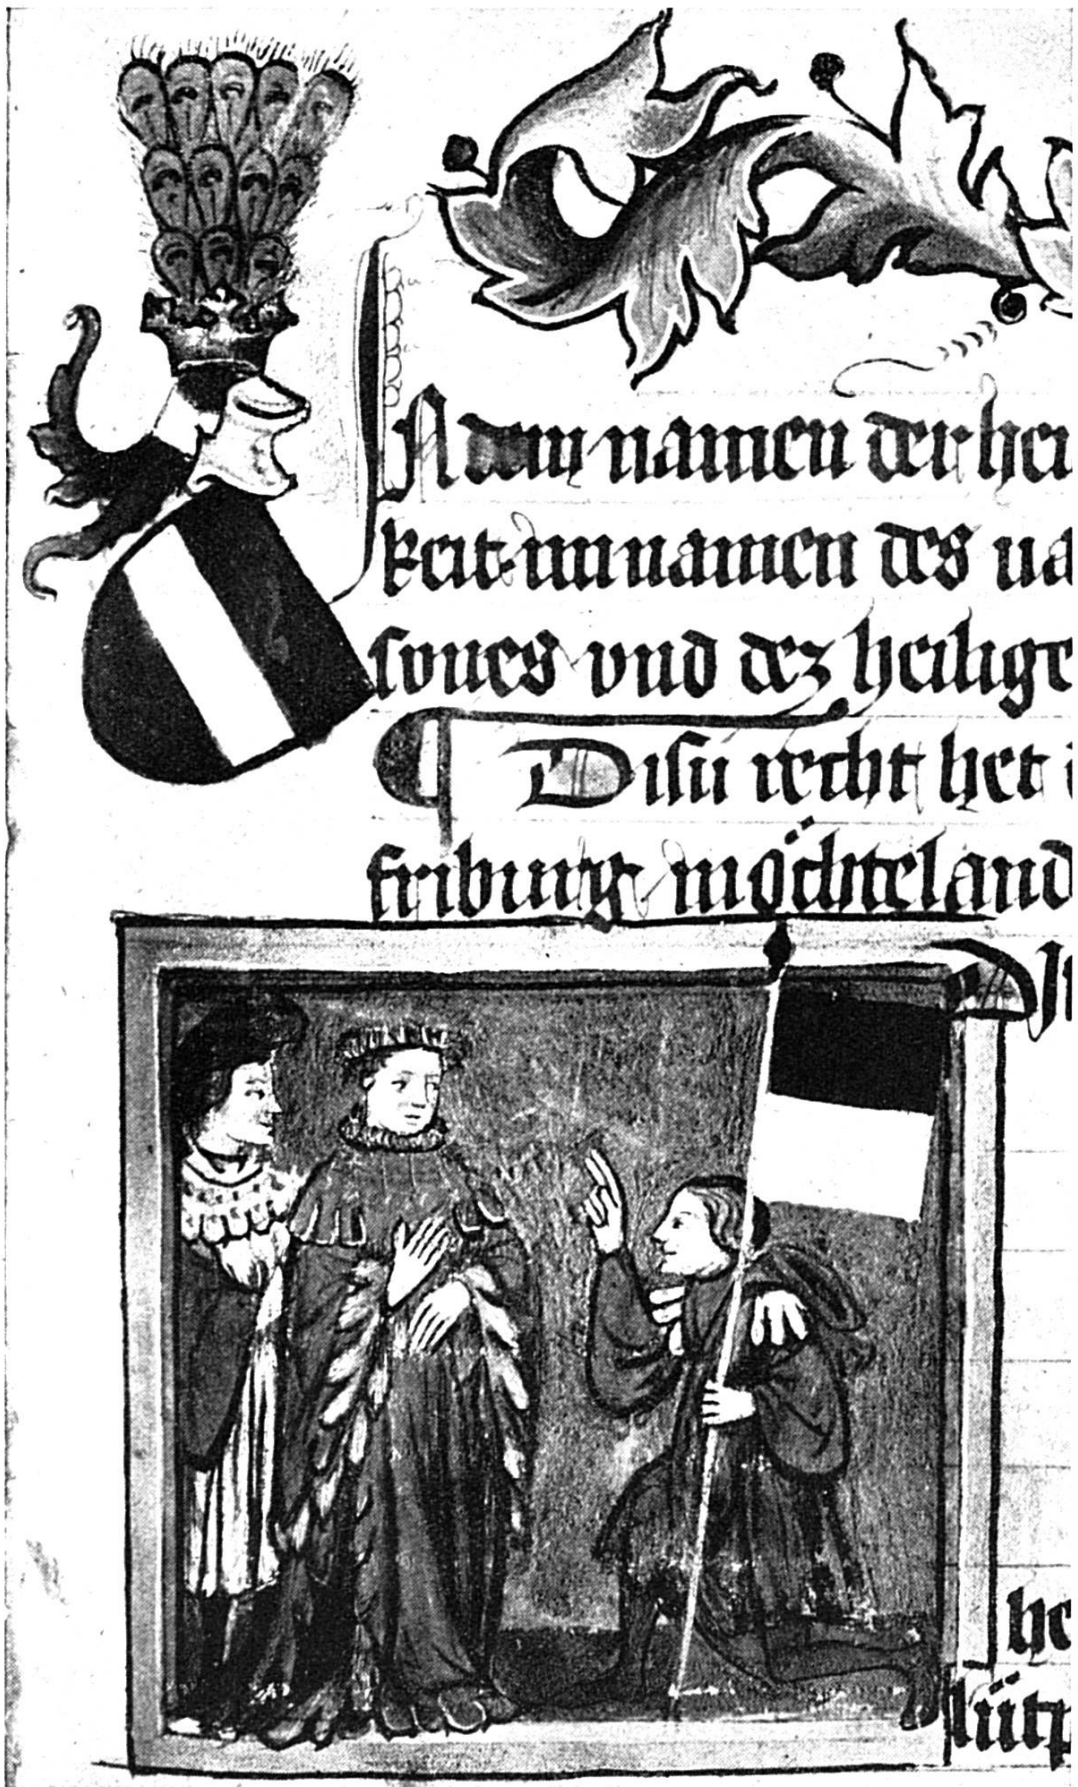 IN dem namen der hei
keit im namen des va
sones vnd dez heilige
Disü recht het i
friburg möchteland
DI
he
lütp